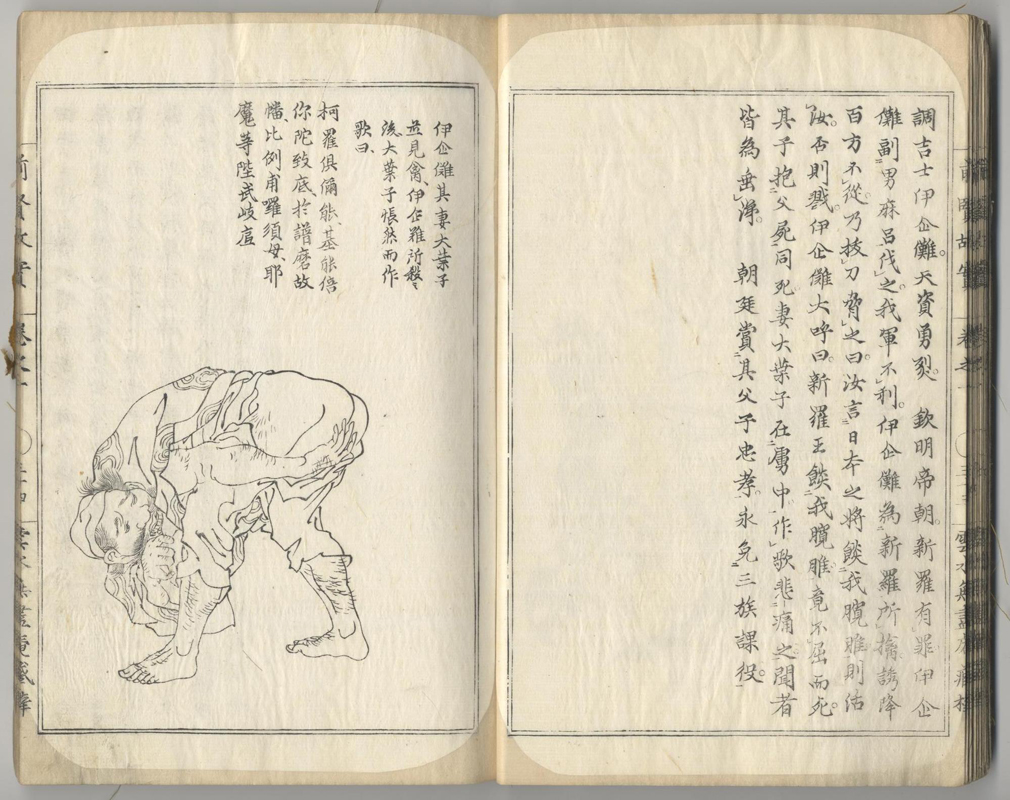 調吉士伊企儺。天資勇烈。 欽明帝朝。新羅有罪伊企
儺副男麻呂伐之。我軍不利。伊企儺為新羅所擒誘降
百方不從乃拔刀脅之曰。汝言日本之將餤我臗脽則活
汝。否則戮。伊企儺大呼曰新羅王餤我臗脽。竟不屈而死。
其子抱父死同死妻大葉子在虜中作歌悲痛之聞者
皆為垂淨。 朝廷賞其父子忠孝。永免三族課役。
伊企儺其妻大葉子
並見禽、伊企難所殺、
後大葉子悵然而作
歌曰、
柯羅俱爾能、基能倍
你陀致底、於譜磨故
幡、比例甫囉須母、耶
魔等陛武岐底
前賢故實 卷之一